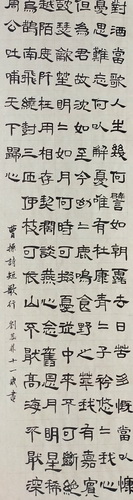 對酒當歌人生幾何譬如朝露去日苦多慨當以慷憂
思難忘何以解憂唯有杜康青二子衿悠二我心
但為君故沉吟至今呦二鹿鳴食野之苹我有嘉賓
鼓瑟吹笙明二如月何時可掇憂從中來不可斷絕
越陌度阡枉用相存契闊談讌心念舊恩月明星稀
烏鵲南飛繞樹三匝何枝可依山不厭高海不厭深
周公吐哺天下歸心
曹操詩短歌行 劉 十一歲書